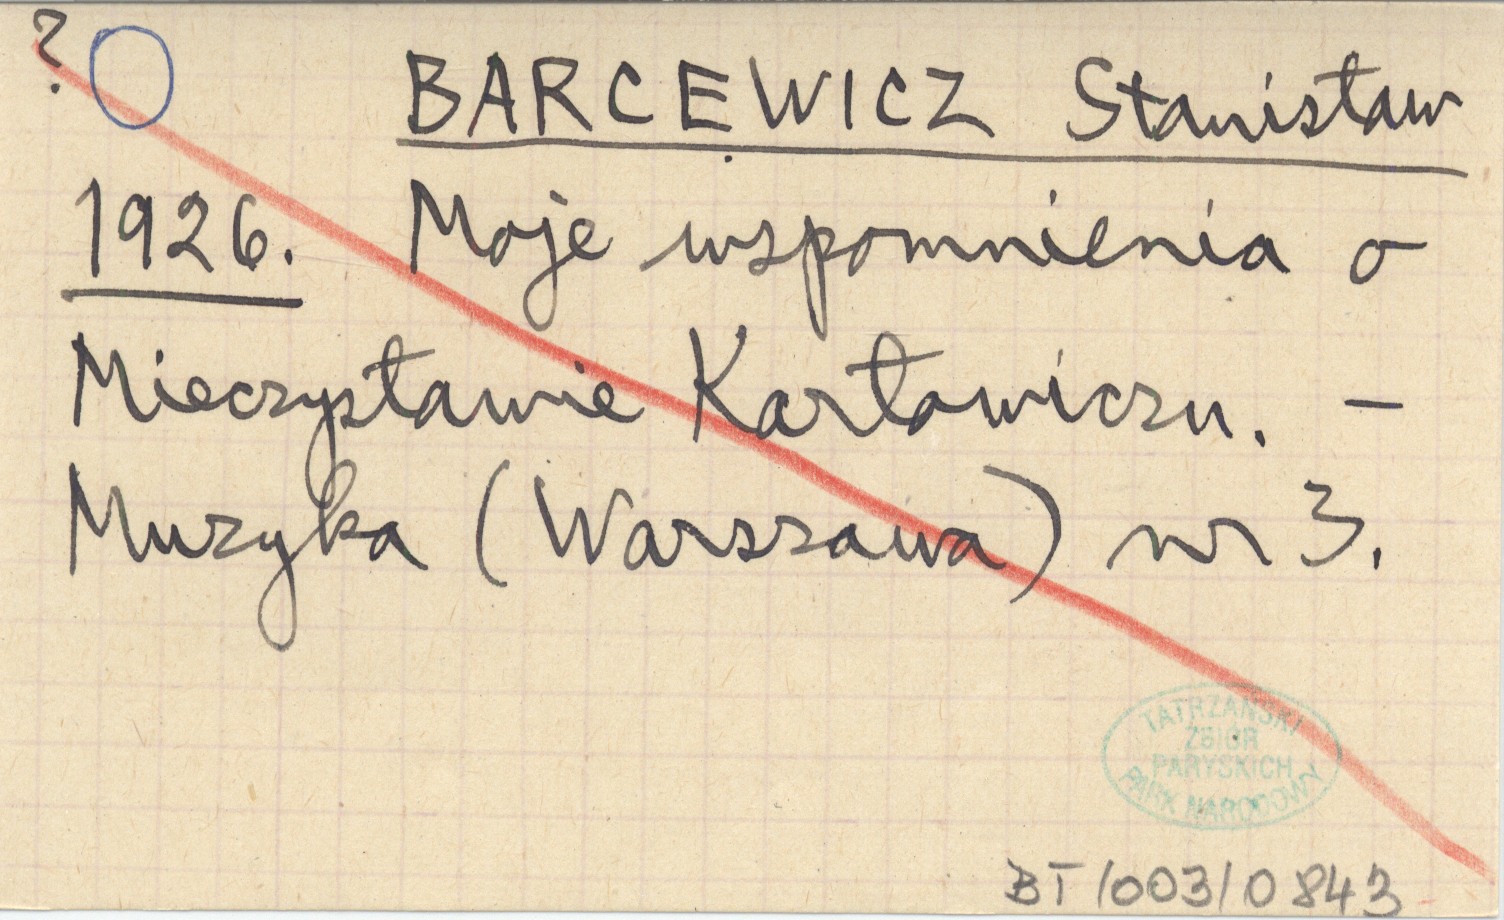 ?
BARCEWICZ Stanisław
1926. Moje wspomnienia o
Mieczysławie Karłowiczu. –
Muzyka (Warszawa) nr 3.
TATRZAŃSKI
ZBIÓR
PARYSKICH
PARK NARODOWY
BT/003/0843